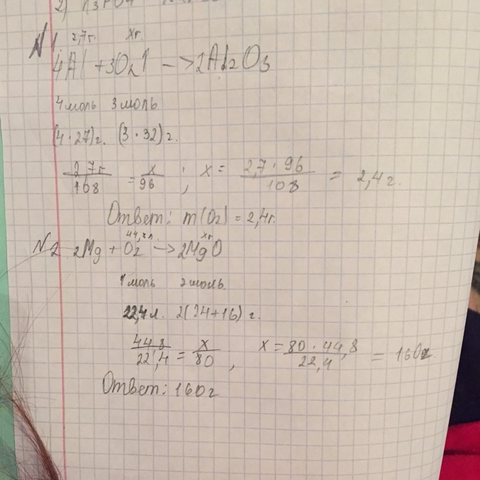 N1 2,7г. xг.
4Al + 3O2↑ —> 2Al2O3
4 моль 3 моль
(4·27)г. (3·32)г.
2,7г/108 = x/96 ; x = 2,7·96/108 = 2,4г.
Ответ: m(O2) = 2,4г.
44,8л xг
N2 2Mg + O2 —> 2MgO
1 моль 2 моль.
22,4л. 2(24+16)г.
44,8/22,4 = x/80 , x = 80·44,8/22,4 = 160г
Ответ: 160г